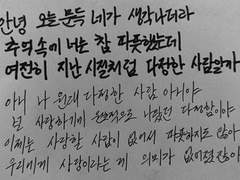 안녕 오늘 문득 네가 생각나더라
추억 속에 너는 참 따뜻했는데
여전히 지난 시절처럼 다정한 사람일까
아니 나 원래 다정한 사람 아니야
널 사랑하기에 완성적으로 나왔던 다정함이야
이제는 사랑할 사람이 없어서 따뜻하지도 않아
우리에게 사랑이라는 게 의미가 없어졌잖아